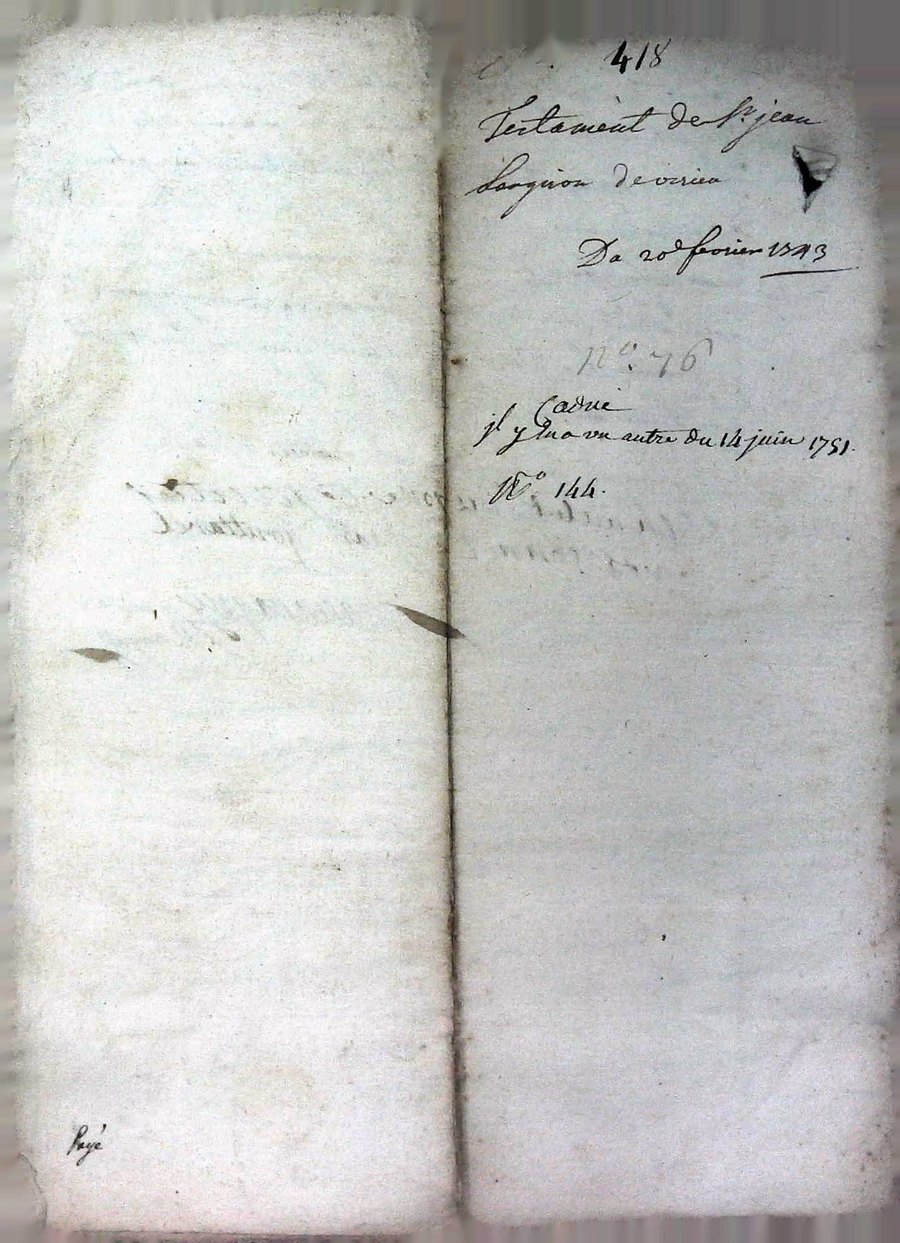 418
Testament de Sr jean
Longiron de virieu
Du 20e fevrier 1743
No. 76
Caduc
jl y en a vn autre du 14 juin 1751.
No 144.
Payé